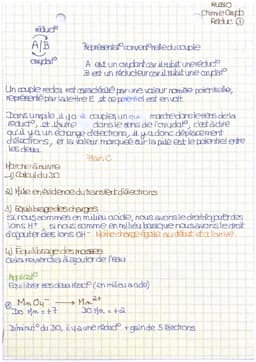 RUBIO
Chimie Oxydo
Réduc ③
réduc°
A|B
oxydat°
Représentat° conventionnelle du couple
A est un oxydant car il subit une réduct°
B est un réducteur car il subit une oxydat°
Un couple redox est caractérisé par une valeur nommée potentielle,
représentée par la lettre E et ce potentiel est en volt.
Dans une pile il y a 2 couples, un qui marche dans le sens de la
réduct°, et l'autre dans le sens de l'oxydat°, c'est à dire
qu'il y a un échange d'électrons, il y a donc déplacement
d'électrons, et la valeur marquée sur la pile est le potentiel entre
les deux.
Plan C
Marche à suivre
1) Calcul du DO
2) Mise en évidence du transfert d'électrons
3) Equilibrage des charges
Si nous sommes en milieu acide, nous avons le droit d'ajouter des
ions H⁺, si nous sommes en milieu basique nous avons le droit
d'ajouter des ions OH⁻.
4) Equilibrage des masses
Cela reviendra à ajouter de l'eau
Applicat°
Equilibrer les deux réduct° (en milieu acide)
MnO₄⁻ → Mn²⁺
DO Mn = +7 DO Mn = +2
Diminut° du DO, il y a une réduct° + gain de 5 électrons